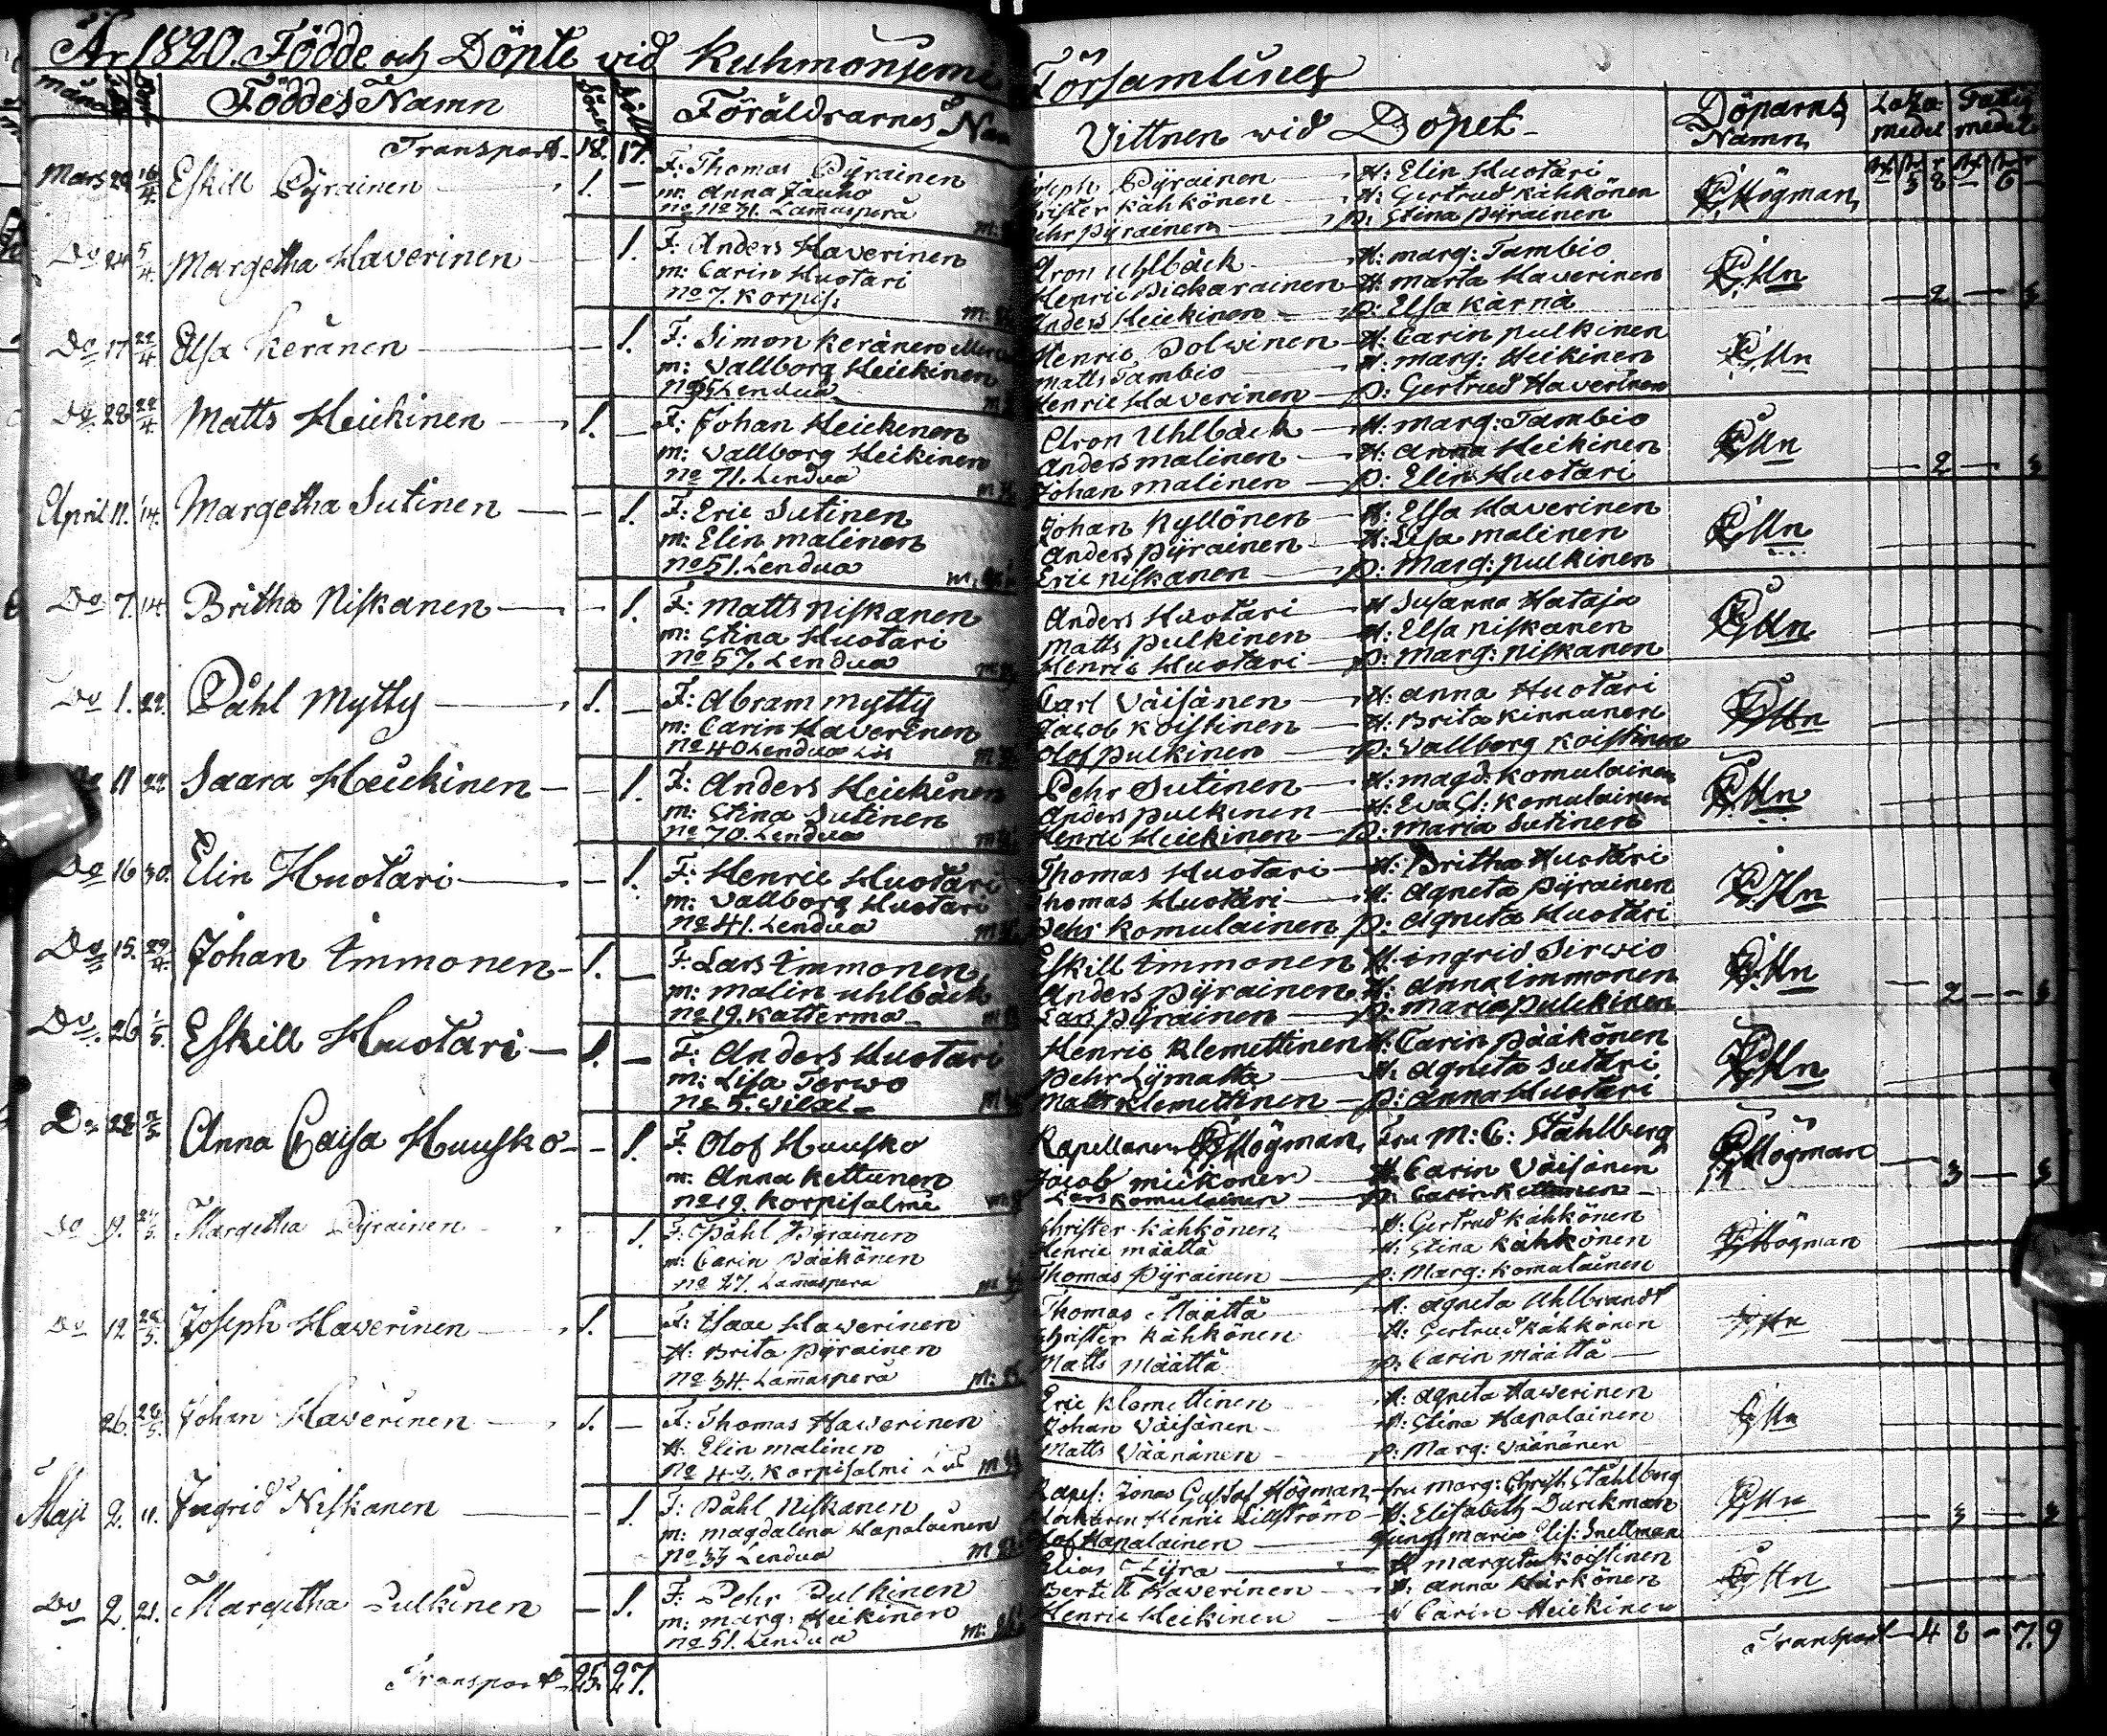 År 1820. Födde och Döpte vid Kuhmonjemi Församling
Månad
Föddes Namn
Söner
Föräldrarnes Nam
Vittnen wid Döpet
Döparns Namn
medel medel
Transport 18. 17.
Mars 16/4 Eskill Pÿrainen 1. —
F: Thomas Pÿrainen
m: Anna
No 31. Lamaspera
Joseph Pÿrainen — H: Elin Huotari
Christer Kähkönen — H: Gertrud Kähkönen
Pehr Pÿrainen — p: Stina Pÿrainen
Högman
Do 24 5/4 Margetha Haverinen — 1.
F: Anders Haverinen
m: Carin Huotari
No 7. Korpis:
Aron Uhlbäck — H: marg: Tambio
Henric — H: marta Haverinen
Anders Heickinen — p: Elsa Kärnä
Hn
Do 17 22/4 Elsa Keränen — 1.
F: Simon Keränen
m: Vallborg Heickinen
Lendua
Henric Polvinen — H: Carin Pulkinen
Matts Tambio — H: marg: Heikinen
Henric Haverinen — p: Gertrud Haverinen
Hn
Do 28 22/4 Matts Heickinen 1. —
F: Johan Heickinen
m: Vallborg Heikinen
No 71. Lendua
Aron Uhlbäck — H: marg: Tambio
Anders Malinen — H: Anna Heikinen
Johan Malinen — p: Elin Huotari
Hn
April 11. 14. Margetha Sutinen — 1.
F: Eric Sutinen
m: Elin Malinen
No 51. Lendua
Johan Kyllönen — H: Elsa Haverinen
Anders Pÿrainen — H: Elsa Malinen
Eric Niskanen — p: Marg: Pulkinen
Hn
Do 7. 14. Britha Niskanen — 1.
F: Matts Niskanen
m: Stina Huotari
No 57. Lendua
Anders Huotari — H: Susanna Hataja
Matts Pulkinen — H: Elsa Niskanen
Henric Huotari — p: Marg: Niskanen
Hn
Do 1. 22. Påhl Mytty 1. —
F: Abram Mytty
m: Carin Haverinen
No 40 Lendua
Carl Väisänen — H: Anna Huotari
Jacob Koistinen — H: Brita Kinnunen
Olof Pulkinen — p: Vallborg Koistinen
Hn
Do 11 22 Saara Heickinen — 1.
F: Anders Heickinen
m: Stina Sutinen
No 70. Lendua
Pehr Sutinen — H: Magd: Komulainen
Anders Pulkinen — H: Eva St: Komulainen
Henric Heickinen — p: Maria Sutinen
Hn
Do 16 30. Elin Huotari — 1.
F: Henric Huotari
m: Vallborg Huotari
No 41. Lendua
Thomas Huotari — H: Britha Huotari
Thomas Huotari — H: Agneta Pÿrainen
Pehr Komulainen p: Agneta Huotari
Hn
Do 15. 29/4 Johan Immonen 1. —
F: Lars Immonen
m: Malin Uhlbäck
No 19. Katterma
Eskill Immonen H: Ingrid Servio
Anders Pÿrainen H: Anna Immonen
Lars Pÿrainen — p: Maria Pulckinen
Hn
Do 26 1/5 Eskill Huotari 1. —
F: Anders Huotari
m: Lisa Terwo
No 5. Viexi
Henric Klemettinen H: Carin Pääkönen
Pehr Lÿmatta — H: Agneta Sutari
Matts Klemettinen — p: Anna Huotari
Hn
Do 22 2/5 Anna Caisa Huusko — 1.
F: Olof Huusko
m: Anna Kettunen
No 19. Korpisalmi
Kapellanen Högman, Fru M: C: Ståhlberg
Jacob Mickonen — H: Carin Väisänen
Lars Komulainen — p: Carin Kettunen
Högman
Do 9. Margetha Pÿrainen — 1.
F: Påhl Pÿrainen
m: Carin Pääkönen
No 27. Lamaspera
Christer Kähkönen H: Gertrud Kähkönen
Henric Määttä H: Stina Kähkönen
Thomas Pÿrainen — p: Marg: Komulainen
Högman
Do 12 28/5 Joseph Haverinen 1. —
F: Isaac Haverinen
H: Brita Pÿrainen
No 34. Lamaspera
Thomas Määttä H: Agneta Uhlbrandt
Christer Kähkönen H: Gertrud Kähkönen
Matts Määttä p: Carin Määttä
Hn
26. 28/5 Johan Haverinen 1. —
F: Thomas Haverinen
H: Elin Malinen
No 42. Korpisalmi
Eric Klemettinen H: Agneta Haverinen
Johan Väisänen H: Stina Hapalainen
Matts Väänänen p: Marg: Väänänen
Hn
Maji 2. 11. Ingrid Niskanen — 1.
F: Påhl Niskanen
m: Magdalena Hapalainen
No 33 Lendua
Kapel: Jonas Gustaf Högman, fru Marg: Christ: Ståhlberg
Henric Lillström — H: Elisabeth Durckman
Olof Hapalainen — Jungf Maria Elis: Snellman
Hn
Do 2 21. Margetha Pulkinen — 1.
F: Pehr Pulkinen
m: Marg: Heikinen
No 51. Lendua
Elias Zÿra — H Margeta Koistinen
Bertill Haverinen — H: Anna Härkönen
Henric Heikinen — Carin Heickinen
Hn
Transport 25. 27.
Transport — 4 2 — 7. 9